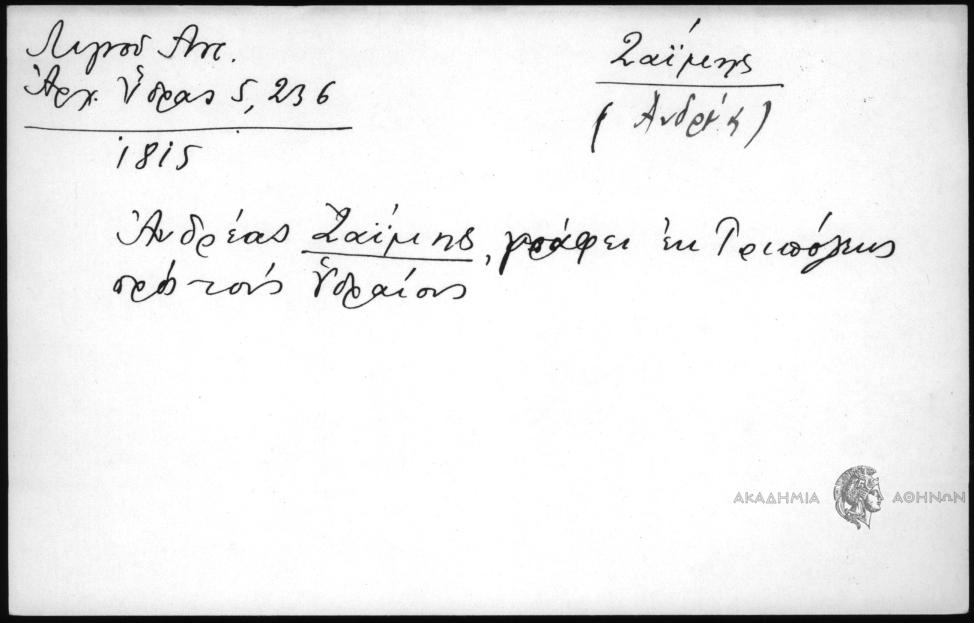 Λιγνού Αντ.
Ἀρχ. Ὕδρας 5, 236
1815
Ζαΐμης
( Ἀνδρέας )
Ἀνδρέας Ζαΐμης, γράφει ἐκ Τριπόλεως
πρὸς τοὺς Ὑδραίους
ΑΚΑΔΗΜΙΑ ΑΘΗΝΩΝ